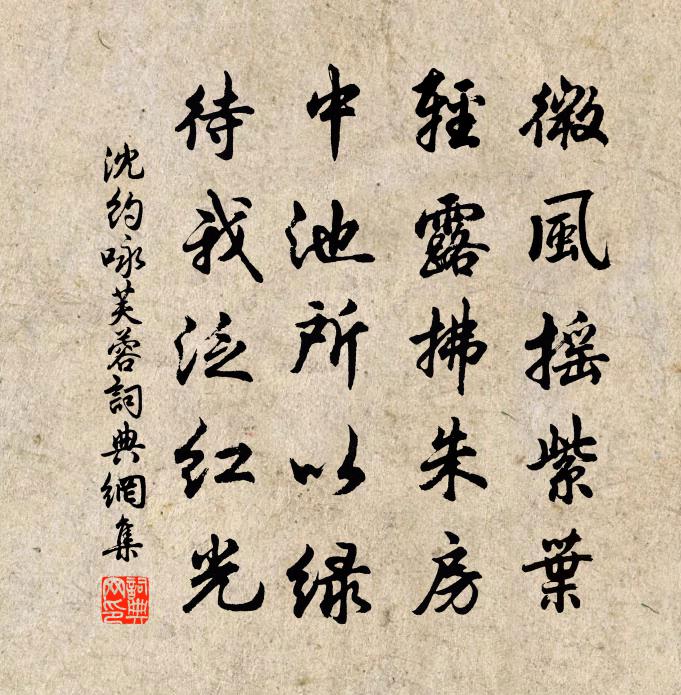 微風摇紫葉
輕露拂朱房
中池所以綠
待我泛紅光
沈約咏芙蓉詞典網集
詞典網印